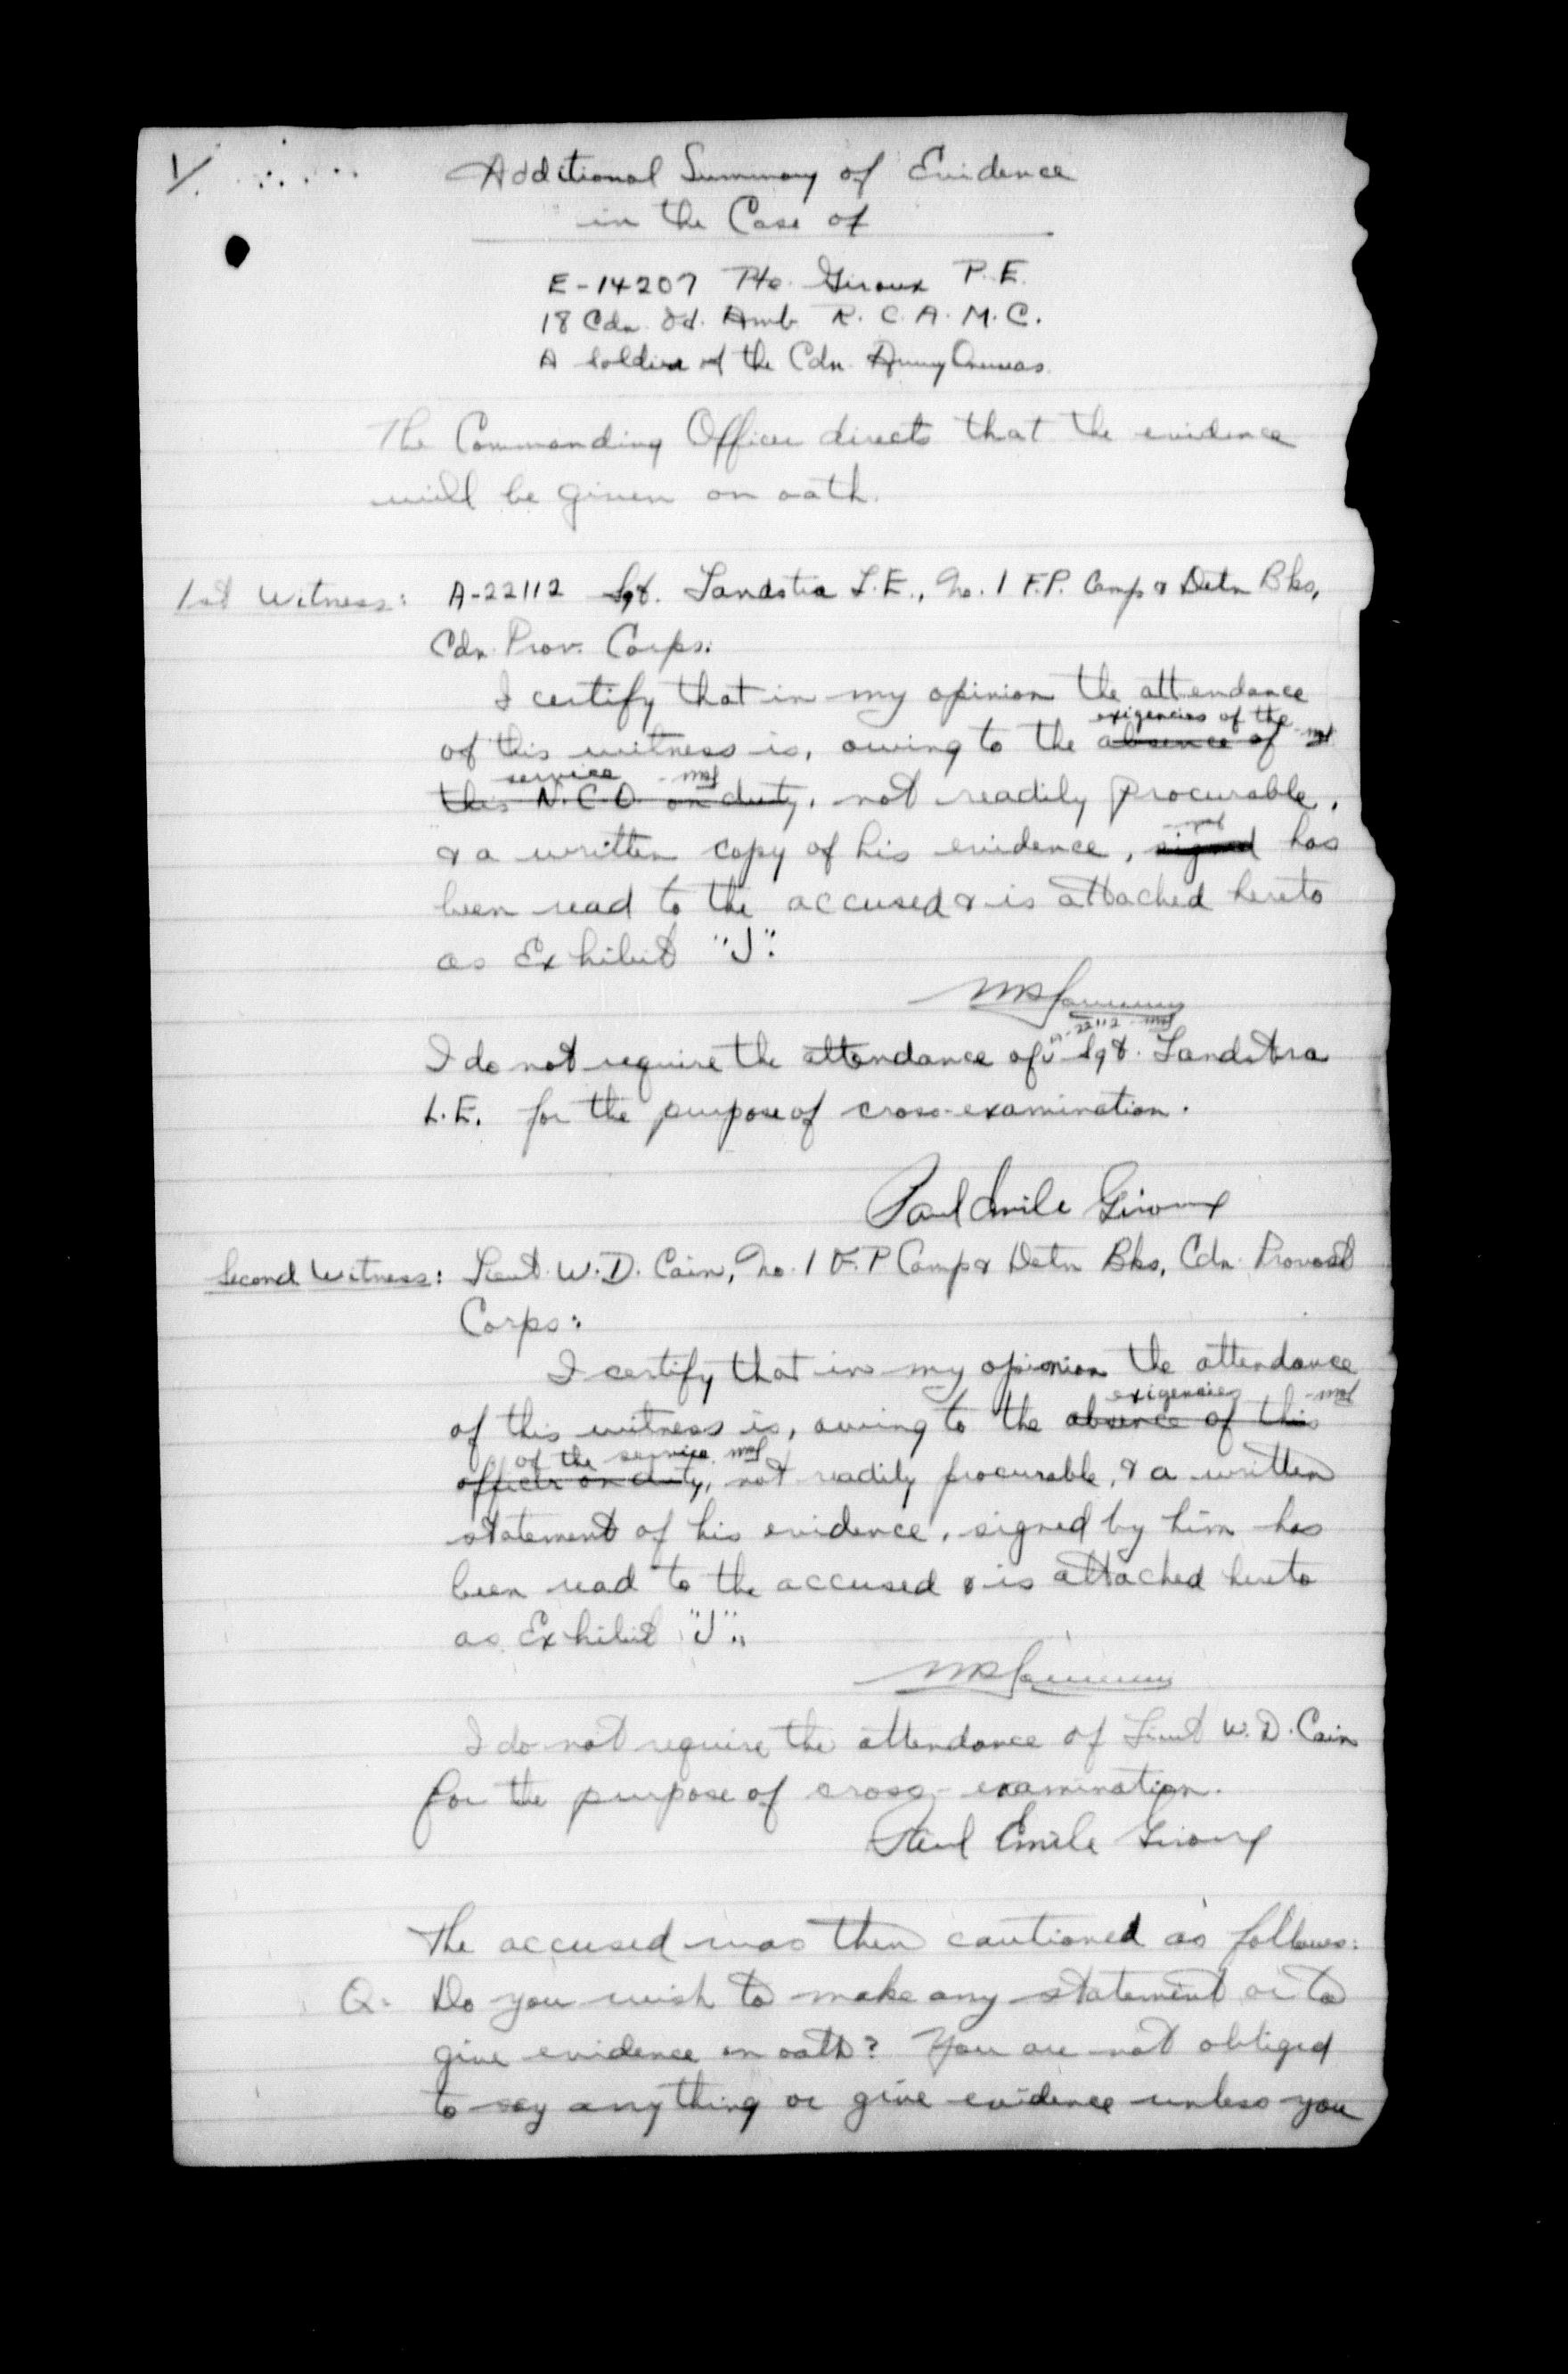 1/
Additional Summary of Evidence
in the Case of
E-14207 Pte. Giroux P.E.
18 Cdn. Fd. Amb. R.C.A.M.C.
A Soldier of the Cdn. Army Overseas
The Commanding Officer directs that the evidence
will be given on oath.
1st Witness: A-22112 Sgt. Landstra L.E., No. 1 F.P. Camp & Detn Bks,
Cdn. Prov. Corps:
I certify that in my opinion the attendance
exigencies of the
of this witness is, owing to the absence of
service
this N.C.O. on duty, not readily procurable,
& a written copy of his evidence, signed has
been read to the accused & is attached hereto
as Exhibit "J".
A-22112
I do not require the attendance of Sgt. Landstra
L.E. for the purpose of cross-examination.
Paul Emile Giroux
Second Witness: Lieut. W.D. Cain, No. 1 F.P Camp & Detn Bks, Cdn. Provost
Corps:
I certify that in my opinion the attendance
exigencies
of this witness is, owing to the absence of this
of the service
officer on duty, not readily procurable, & a written
statement of his evidence, signed by him has
been read to the accused & is attached hereto
as Exhibit "J".
I do not require the attendance of Lieut W.D. Cain
for the purpose of cross-examination.
Paul Emile Giroux
The accused was then cautioned as follows:
Q: Do you wish to make any statement or to
give evidence on oath? You are not obliged
to say anything or give evidence unless you